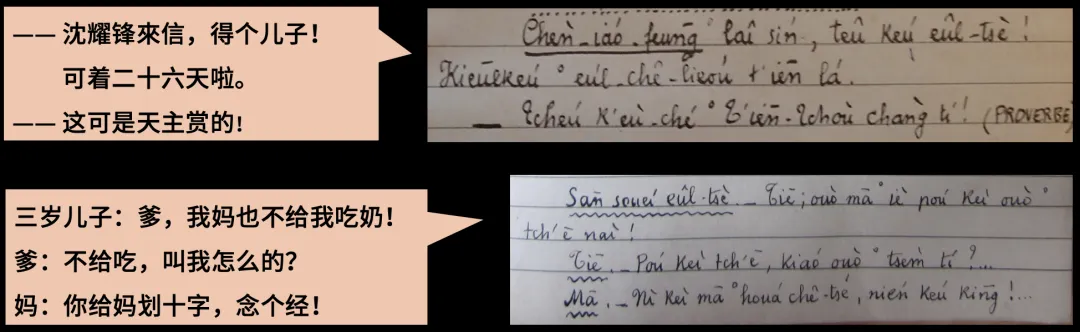 —— 沈耀锋來信，得个儿子！
可着二十六天啦。
—— 这可是天主赏的!
Chēn-iáo-feung° laî sín, teû keú eûl-tsè !
keú ° eúl-chê-lieoú t'iēn lá.
— Tcheú k'eù-ché ° T'iēn-Tchoù chàng tí ! (PROVERBE)
三岁儿子：爹，我妈也不给我吃奶！
爹：不给吃，叫我怎么的？
妈：你给妈划十字，念个经！
Sān soueí eûl-tsè._ Tiē; ouò mā ° iè poú keì ouò °
tch'ē naì !
Tiē._ Poú keì tch'ē, kiaó ouò ° tsèm tí ?...
Mā._ Nì keì mā ° houá chê-tsé, nień keú kīng !...